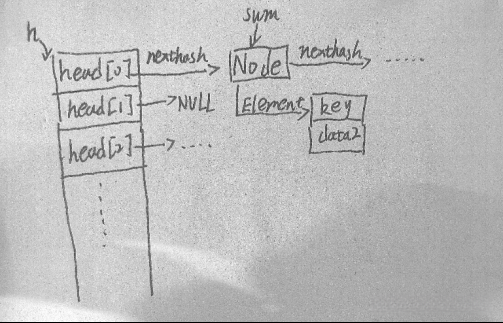 h
sum
head[0]
nexthash
Node
nexthash
......
head[1]
NULL
Element
key
data2
head[2]
.....
......